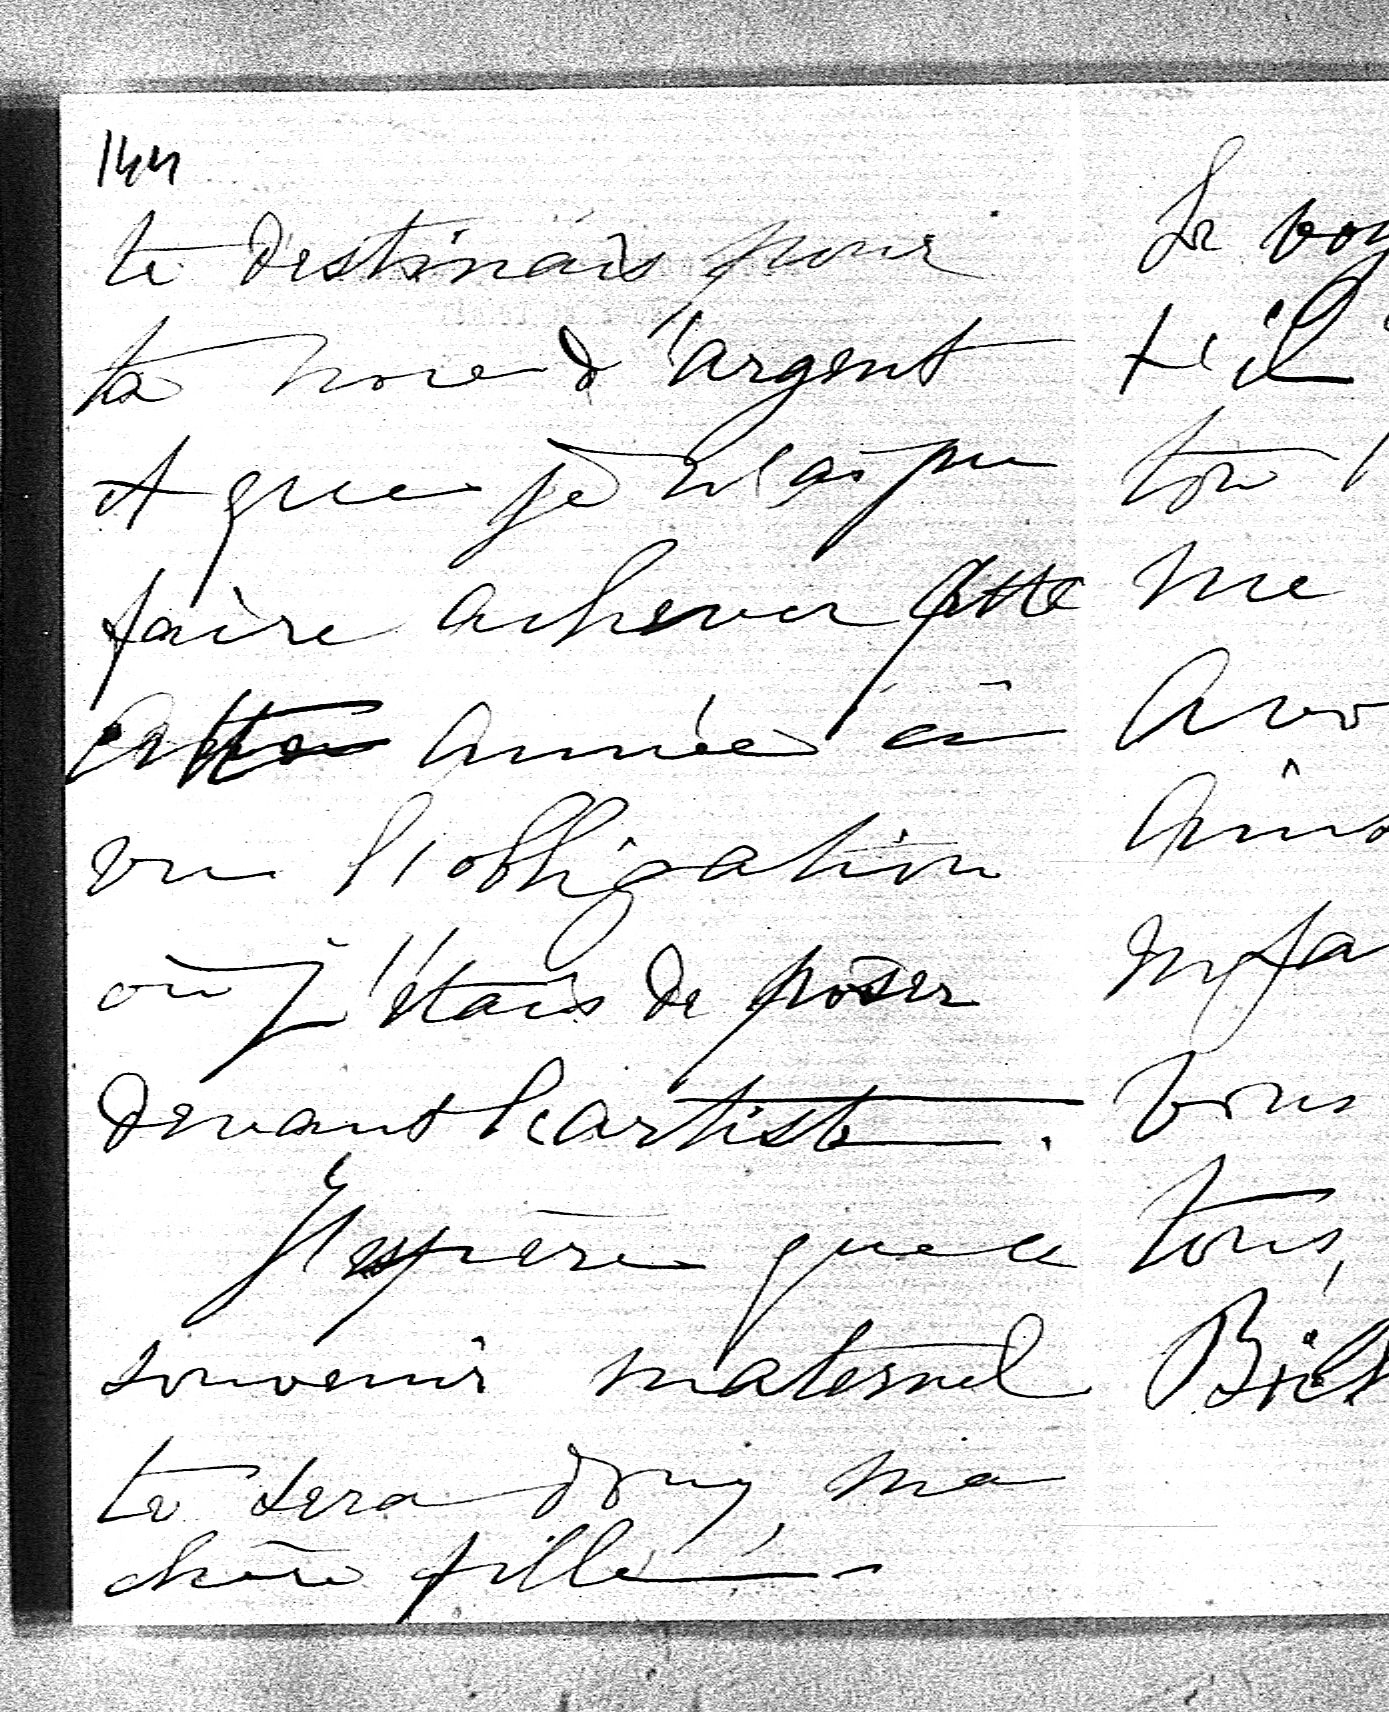 144
te destinais pour
ta noce d'argent
et que je n'ai pu
faire achever cette
cette année ci
vu l'obligation
où j'étais de poser
devant l'artiste.
J'espère que ce
souvenir maternel
te sera doux, ma
chère fille.
Le voy
t'il
ton
me
avo
ains
mfa
vous
tous,